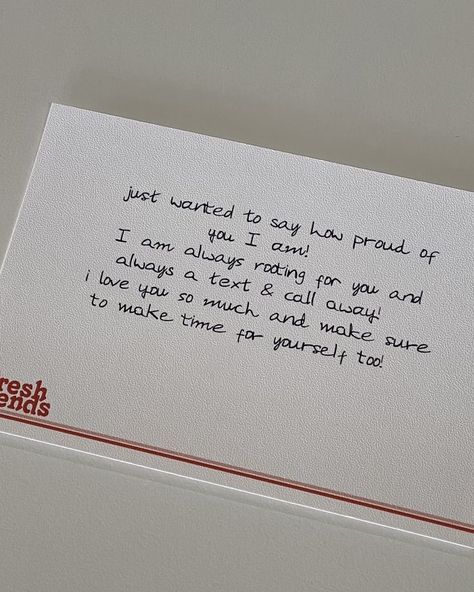 just wanted to say how proud of
you I am!
I am always rooting for you and
always a text & call away!
i love you so much and make sure
to make time for yourself too!
resh
ends